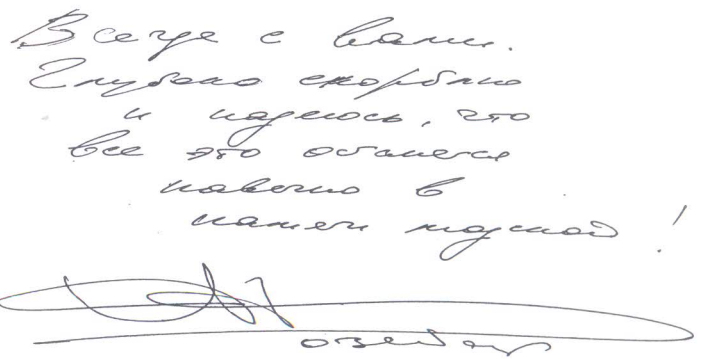 Всегда с вами.
Глубоко скорблю
и надеюсь, что
все это останется
навечно в
памяти людской!